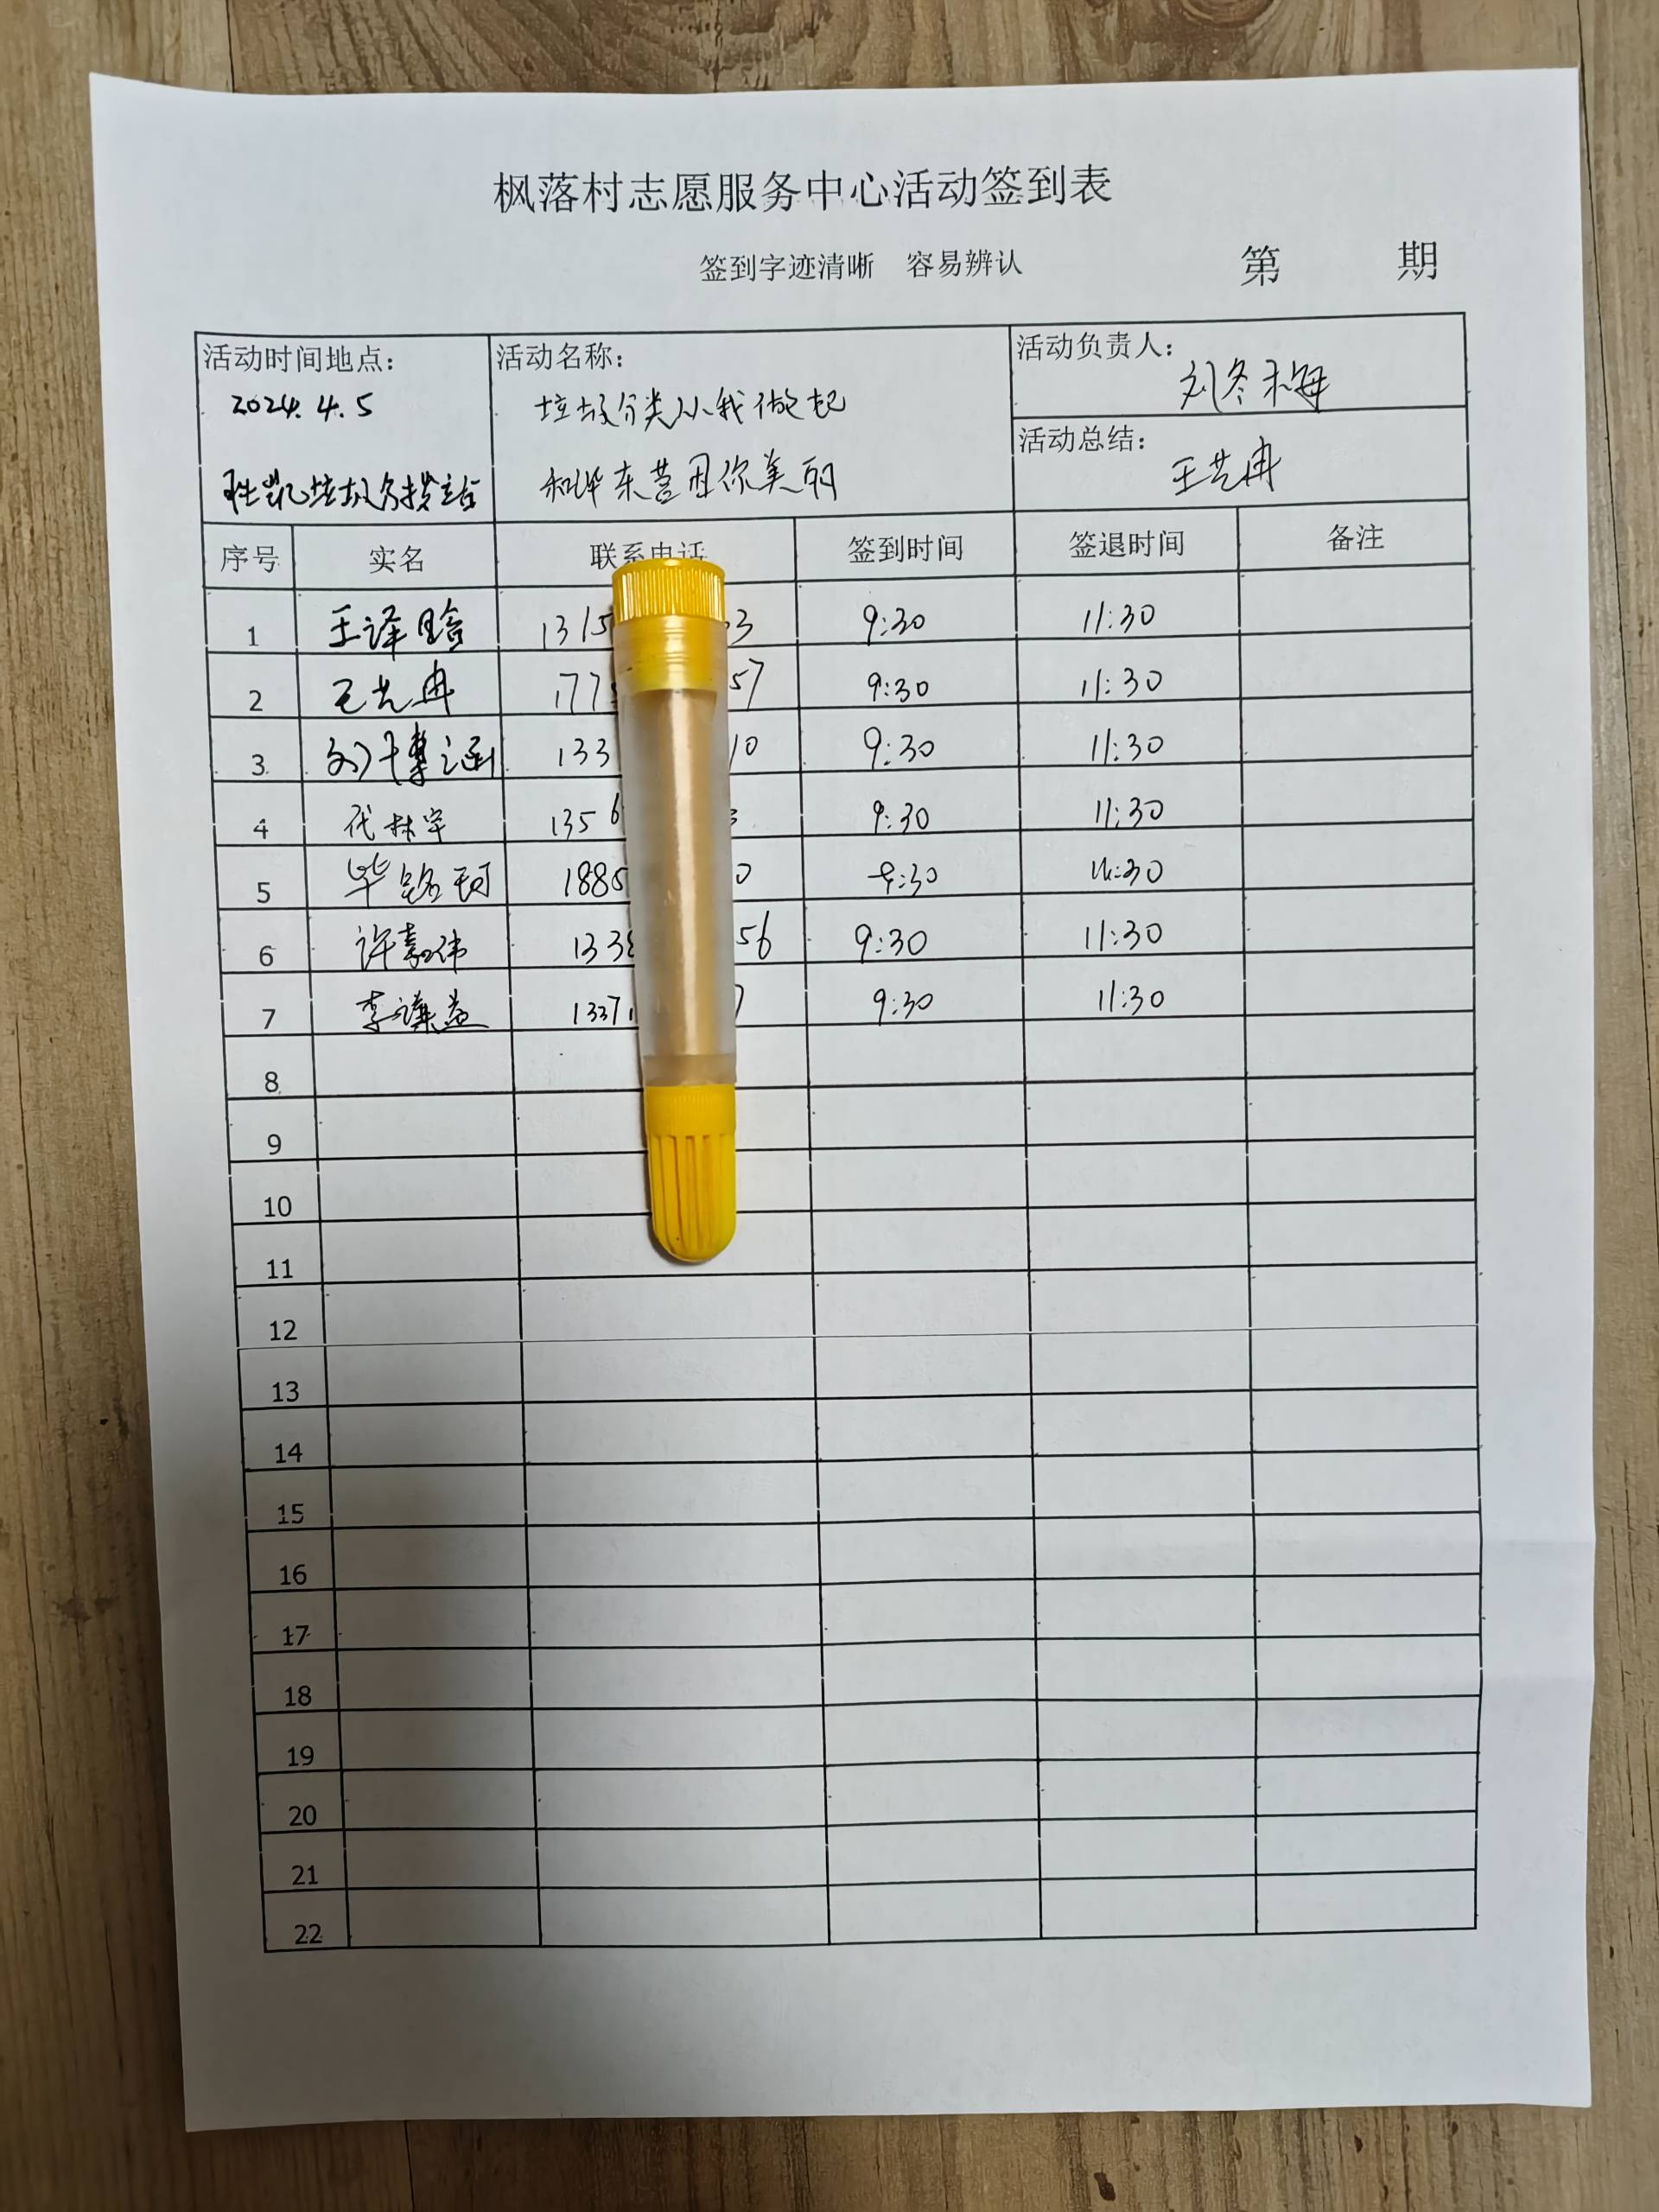 枫落村志愿服务中心活动签到表
签到字迹清晰 容易辨认
第 期
活动时间地点：
2024.4.5
胜凯垃圾分拨站
活动名称：
垃圾分类从我做起
和华东营因你美丽
活动负责人：
刘冬梅
活动总结：
王艺冉
序号 实名 联系电话 签到时间 签退时间 备注
1 王泽晗 1315 3 9:30 11:30
2 王艺冉 177 57 9:30 11:30
3 刘博涵 133 10 9:30 11:30
4 代林宇 1356 9:30 11:30
5 毕铭珂 1885 0 9:30 11:30
6 许嘉伟 133 56 9:30 11:30
7 李谦益 1337 7 9:30 11:30
8
9
10
11
12
13
14
15
16
17
18
19
20
21
22